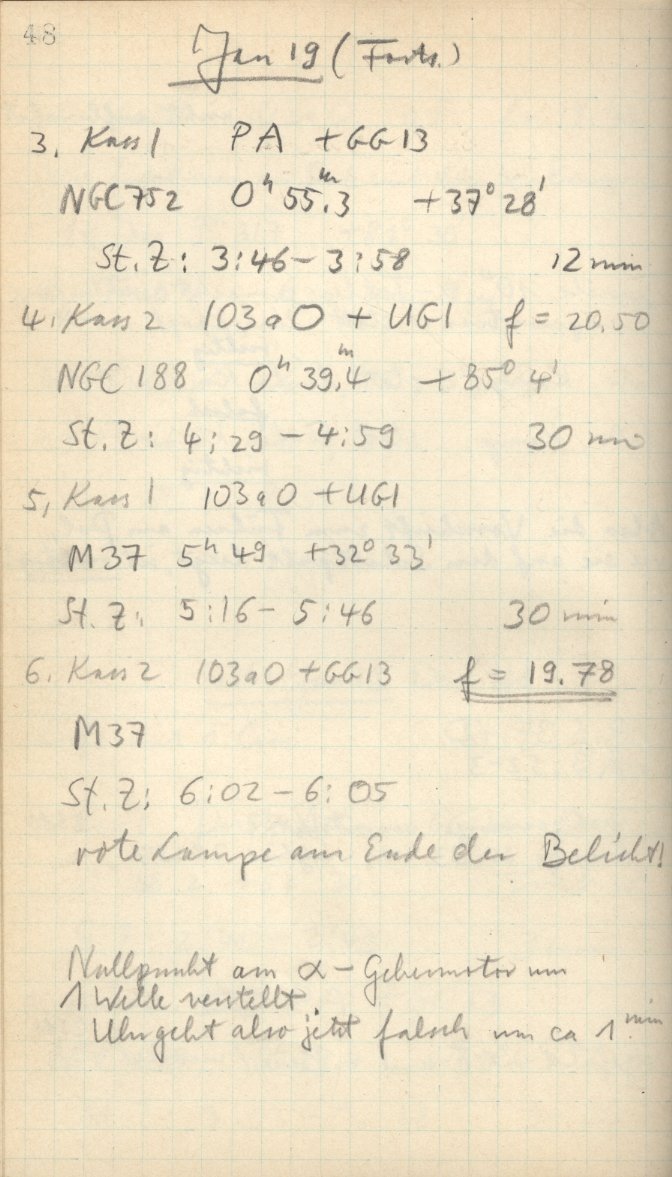 48
Jan 19 (Forts.)
3. Kass 1 PA + GG13
NGC 752 0ʰ 55.ᵐ3 +37° 28'
St. Z: 3:46 – 3:58 12 min
4. Kass 2 103aO + UG1 f = 20.50
NGC 188 0ʰ 39.ᵐ4 +85° 4'
St. Z: 4:29 – 4:59 30 min
5. Kass 1 103aO + UG1
M37 5ʰ 49 +32° 33'
St. Z. 5:16 – 5:46 30 min
6. Kass 2 103aO + GG13 f = 19.78
M37
St. Z: 6:02 – 6:05
rote Lampe am Ende der Belicht!
Nullpunkt am α – Gebermotor um
1 Welle verstellt.
Uhr geht also jetzt falsch um ca 1 min